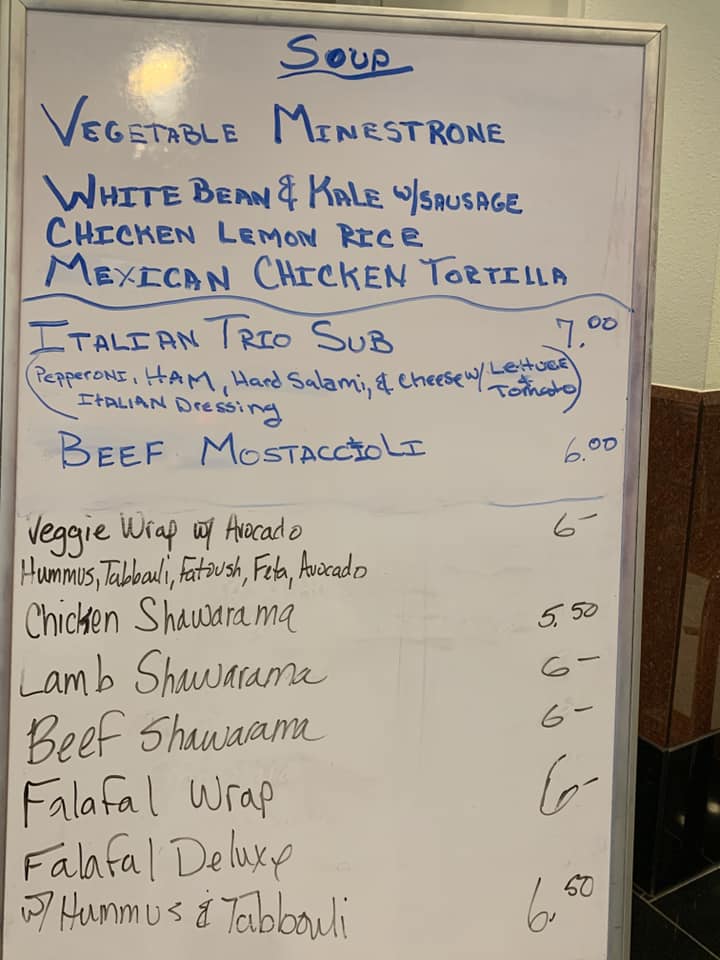 SOUP
VEGETABLE MINESTRONE
WHITE BEAN & KALE W/SAUSAGE
CHICKEN LEMON RICE
MEXICAN CHICKEN TORTILLA
ITALIAN TRIO SUB 7.00
(PEPPERONI, HAM, Hard Salami, & Cheese w/ Lettuce & Tomato)
ITALIAN Dressing
BEEF MOSTACCIOLI 6.00
Veggie Wrap w/ Avocado 6-
Hummus, Tabbouli, Fatoush, Feta, Avocado
Chicken Shawarama 5.50
Lamb Shawarama 6-
Beef Shawarama 6-
Falafal Wrap 6-
Falafal Deluxe
w/ Hummus & Tabbouli 6.50